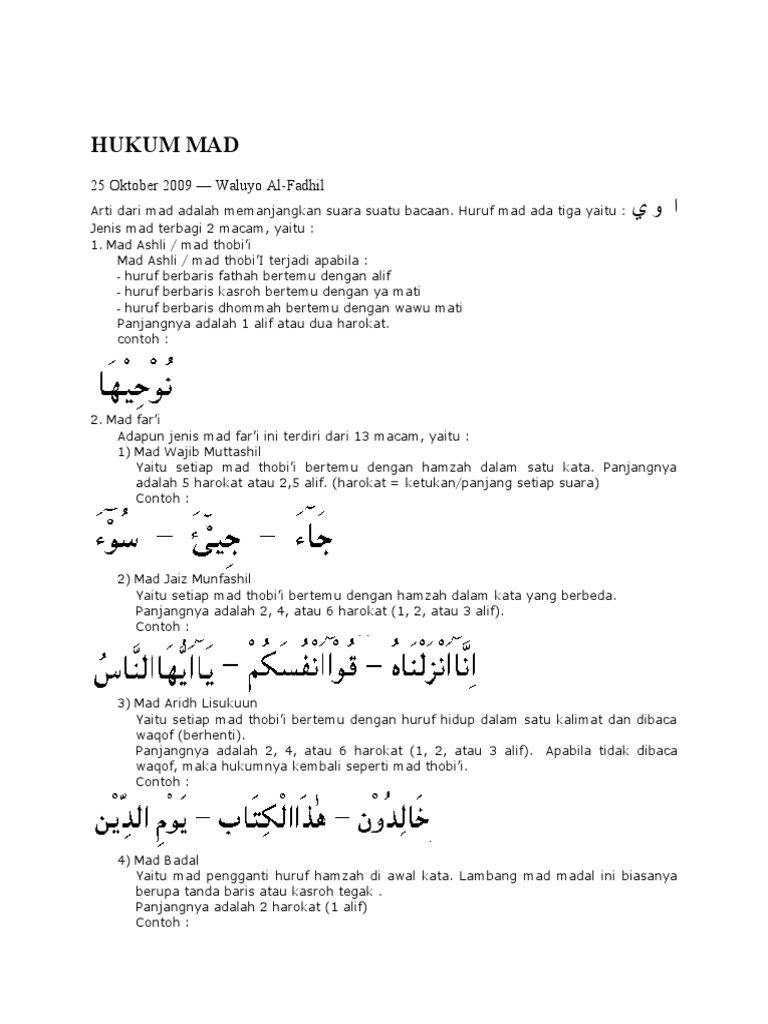 HUKUM MAD
25 Oktober 2009 — Waluyo Al-Fadhil
Arti dari mad adalah memanjangkan suara suatu bacaan. Huruf mad ada tiga yaitu : ا و ي
Jenis mad terbagi 2 macam, yaitu :
1. Mad Ashli / mad thobi’i
Mad Ashli / mad thobi’I terjadi apabila :
- huruf berbaris fathah bertemu dengan alif
- huruf berbaris kasroh bertemu dengan ya mati
- huruf berbaris dhommah bertemu dengan wawu mati
Panjangnya adalah 1 alif atau dua harokat.
contoh :
نُوْحِيْهَا
2. Mad far’i
Adapun jenis mad far’i ini terdiri dari 13 macam, yaitu :
1) Mad Wajib Muttashil
Yaitu setiap mad thobi’i bertemu dengan hamzah dalam satu kata. Panjangnya
adalah 5 harokat atau 2,5 alif. (harokat = ketukan/panjang setiap suara)
Contoh :
جَآءَ – جِيْٓئَ – سُوْٓءَ
2) Mad Jaiz Munfashil
Yaitu setiap mad thobi’i bertemu dengan hamzah dalam kata yang berbeda.
Panjangnya adalah 2, 4, atau 6 harokat (1, 2, atau 3 alif).
Contoh :
اِنَّآاَنْزَلْنَاهُ – قُوْآاَنْفُسَكُمْ – يَآاَيُّهَاالنَّاسُ
3) Mad Aridh Lisukuun
Yaitu setiap mad thobi’i bertemu dengan huruf hidup dalam satu kalimat dan dibaca
waqof (berhenti).
Panjangnya adalah 2, 4, atau 6 harokat (1, 2, atau 3 alif). Apabila tidak dibaca
waqof, maka hukumnya kembali seperti mad thobi’i.
Contoh :
خَالِدُوْنَ – هٰذَاالْكِتَاب – يَوْمِ الدِّيْن
4) Mad Badal
Yaitu mad pengganti huruf hamzah di awal kata. Lambang mad madal ini biasanya
berupa tanda baris atau kasroh tegak .
Panjangnya adalah 2 harokat (1 alif)
Contoh :